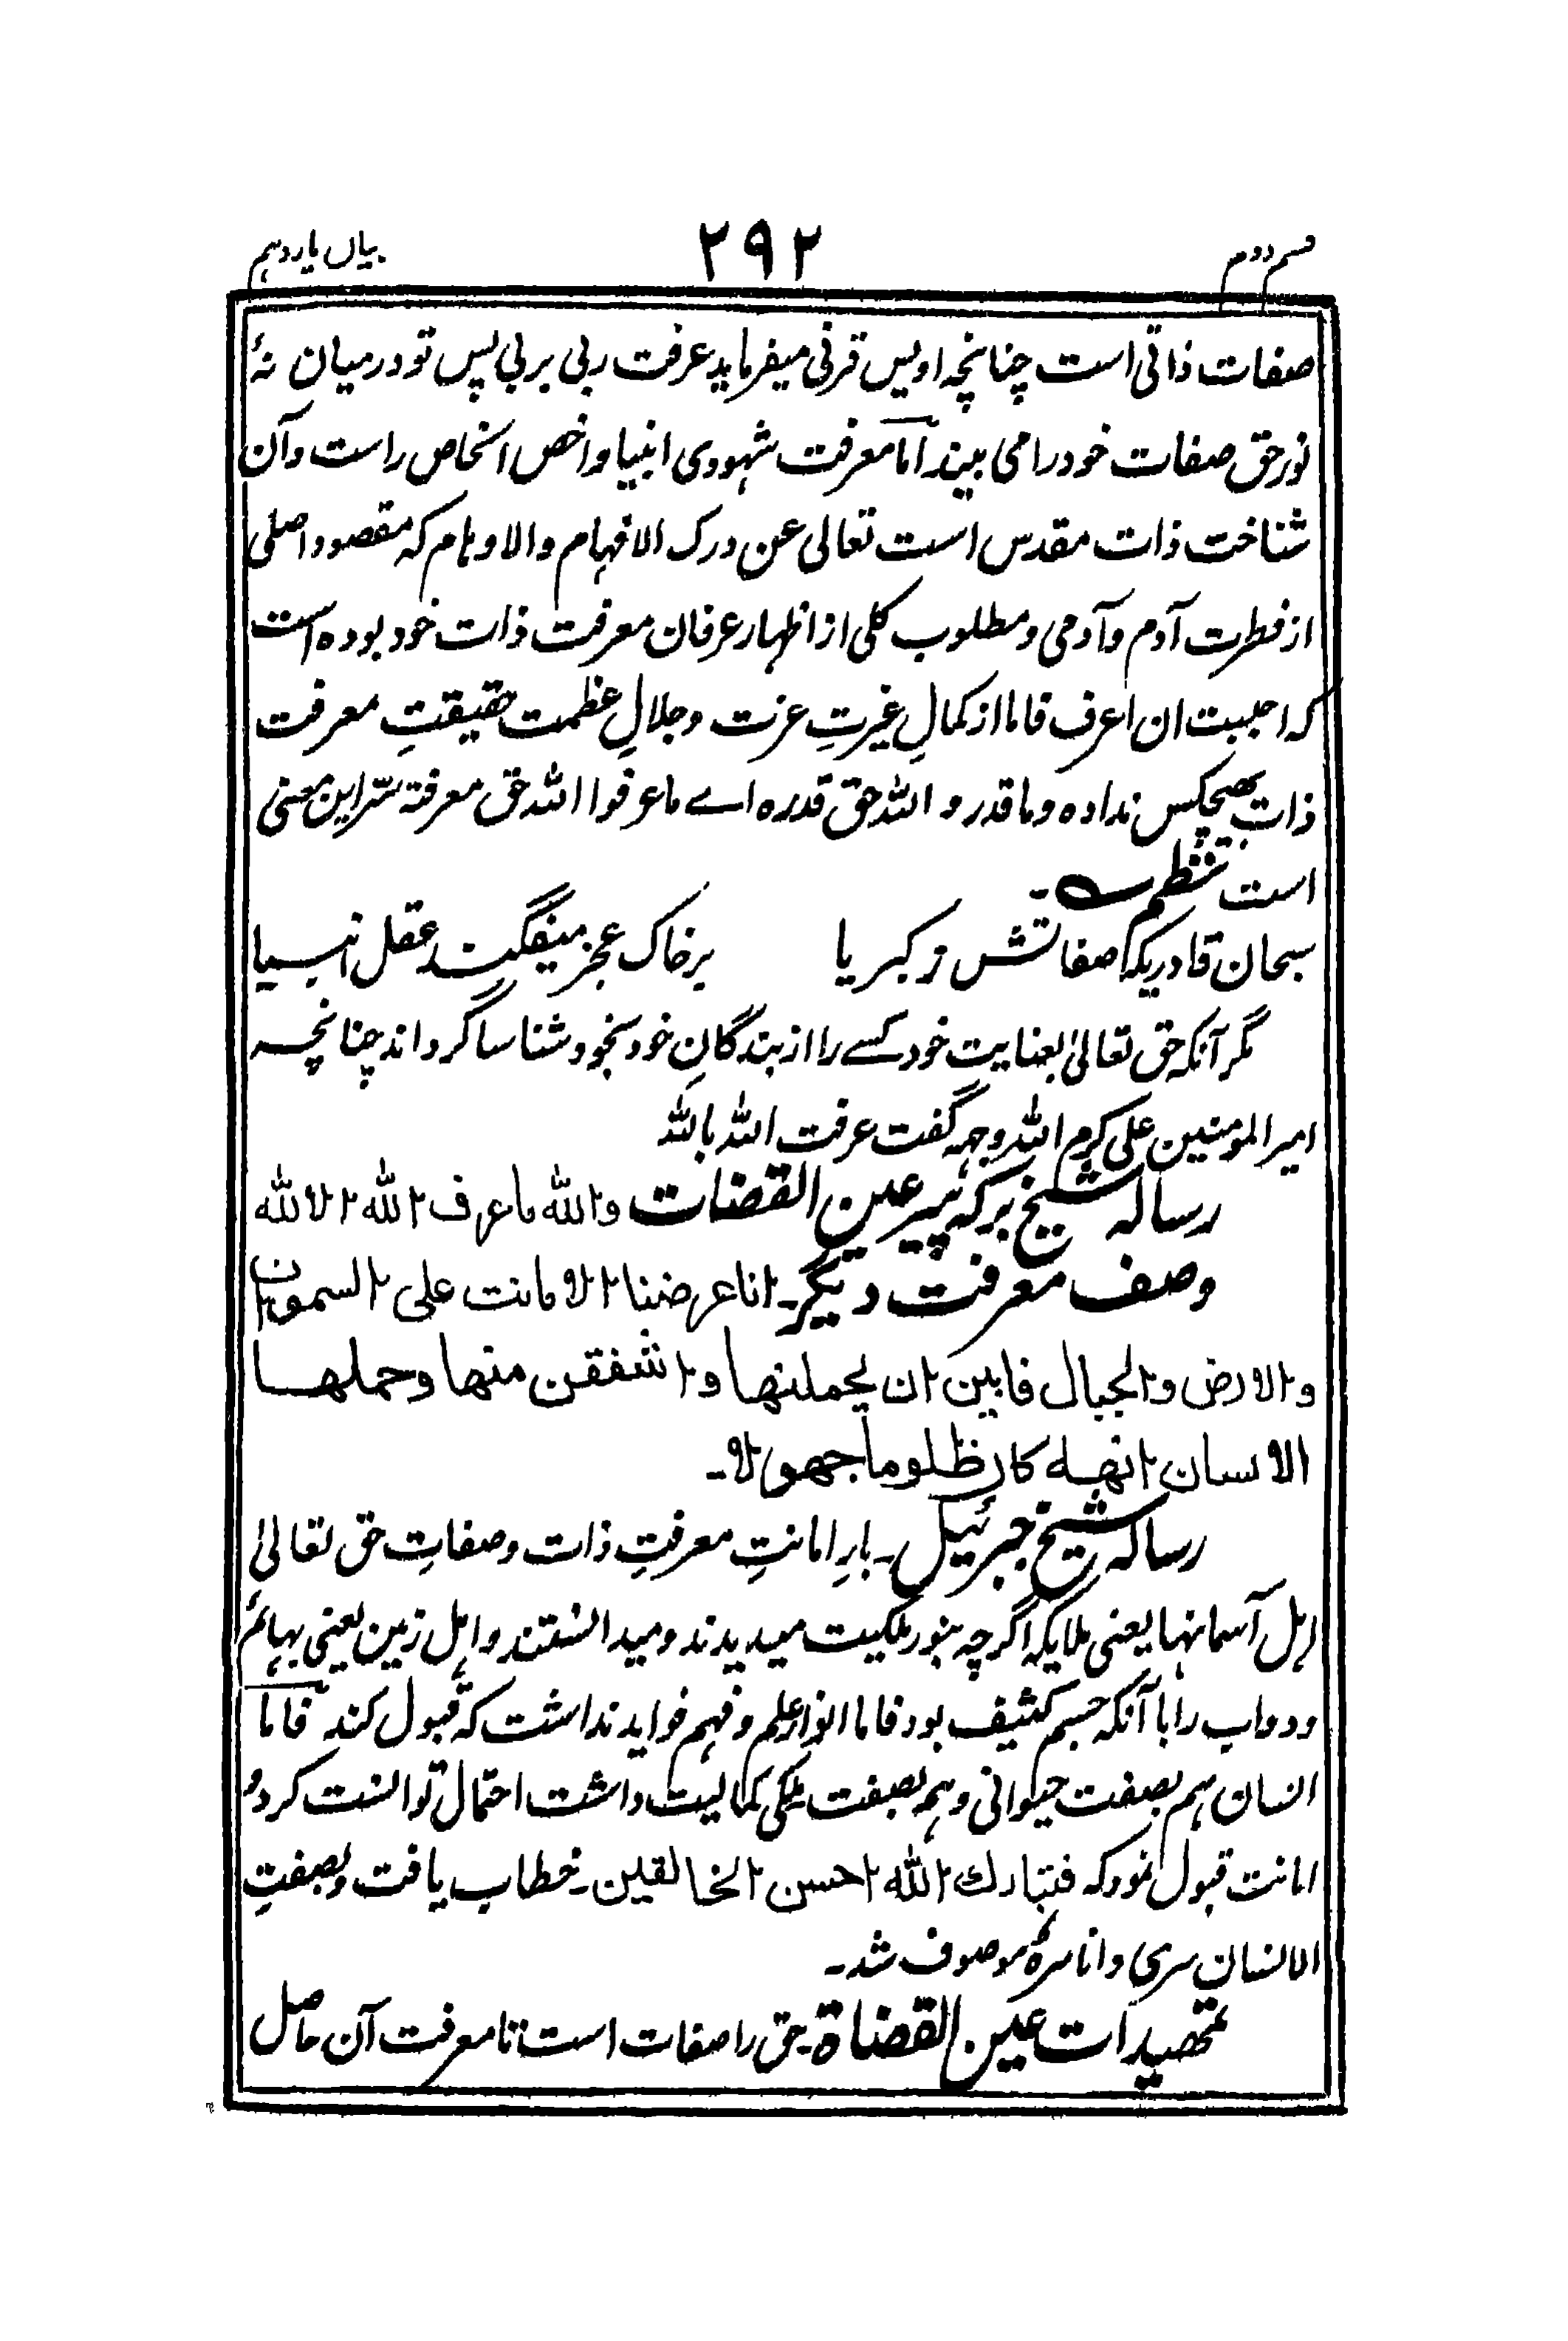 قسم دوم
۲۹۲
بیاں یازدہم
صفات ذاتی است چنانچہ اویس قرنی میفرماید عرفت ربی بربی پس تو درمیان نۂ
نور حق صفات خود را می بیند اما معرفت شہودی انبیا و اخص الخاص راست و آن
شناخت ذات مقدس است تعالی عن درک الافہام والاوہام کہ مقصود اصلی
از فطرت آدم و آدمی و مطلوب کلی از اظہار عرفان معرفت ذات خود بودہ است
کہ احببت ان اعرف فاما از کمالِ غیرتِ عزت و جلالِ عظمت حقیقتِ معرفت
ذات بھیچکس ندادہ و ما قدرو اللہ حق قدرہ اے ماعرفوا اللہ حق معرفتہ سرّ این معنی
است نظم
سبحان قادریکہ صفاتش ز کبریا برخاک عجز میفگند عقل انبیا
مگر آنکہ حق تعالیٰ بعنایت خود کسے را از بندگانِ خود بخود شناسا گرداند چنانچہ
امیرالمومنین علی کرم اللہ وجہہ گفت عرفت اللہ باللہ
رسالہ شیخ برکہ پیر عین القضات واللہ ما عرف اللہ الا اللہ
وصف معرفت دیگر۔ انا عرضنا الامانت علی السموات
والارض والجبال فابین ان یحملنھا واشفقن منھا وحملھا
الانسان انھہ کان ظلوما جھولا۔
رسالہ شیخ جبرئیل۔ بارِ امانتِ معرفتِ ذات وصفاتِ حق تعالیٰ
اہل آسمانہا یعنی ملایکہ اگرچہ بنور ملکیت میدیدند و میدانستند و اہل زمین یعنی بہائم
و دواب را با آنکہ جسم کثیف بود فاما انوار علم و فہم فواید نداشت کہ قبول کند فاما
انسان ہم بصفت حیوانی و ہم بصفت ملکی کمالیت داشت احتمال توانست کرد و
امانت قبول نمود کہ فتبارك اللہ احسن الخالقین۔ خطاب یافت و بصفتِ
الانسان سری وانا سرہٗ موصوف شد۔
تمھیدات عین القضاة۔ حق را صفات است تا معرفت آن حاصل